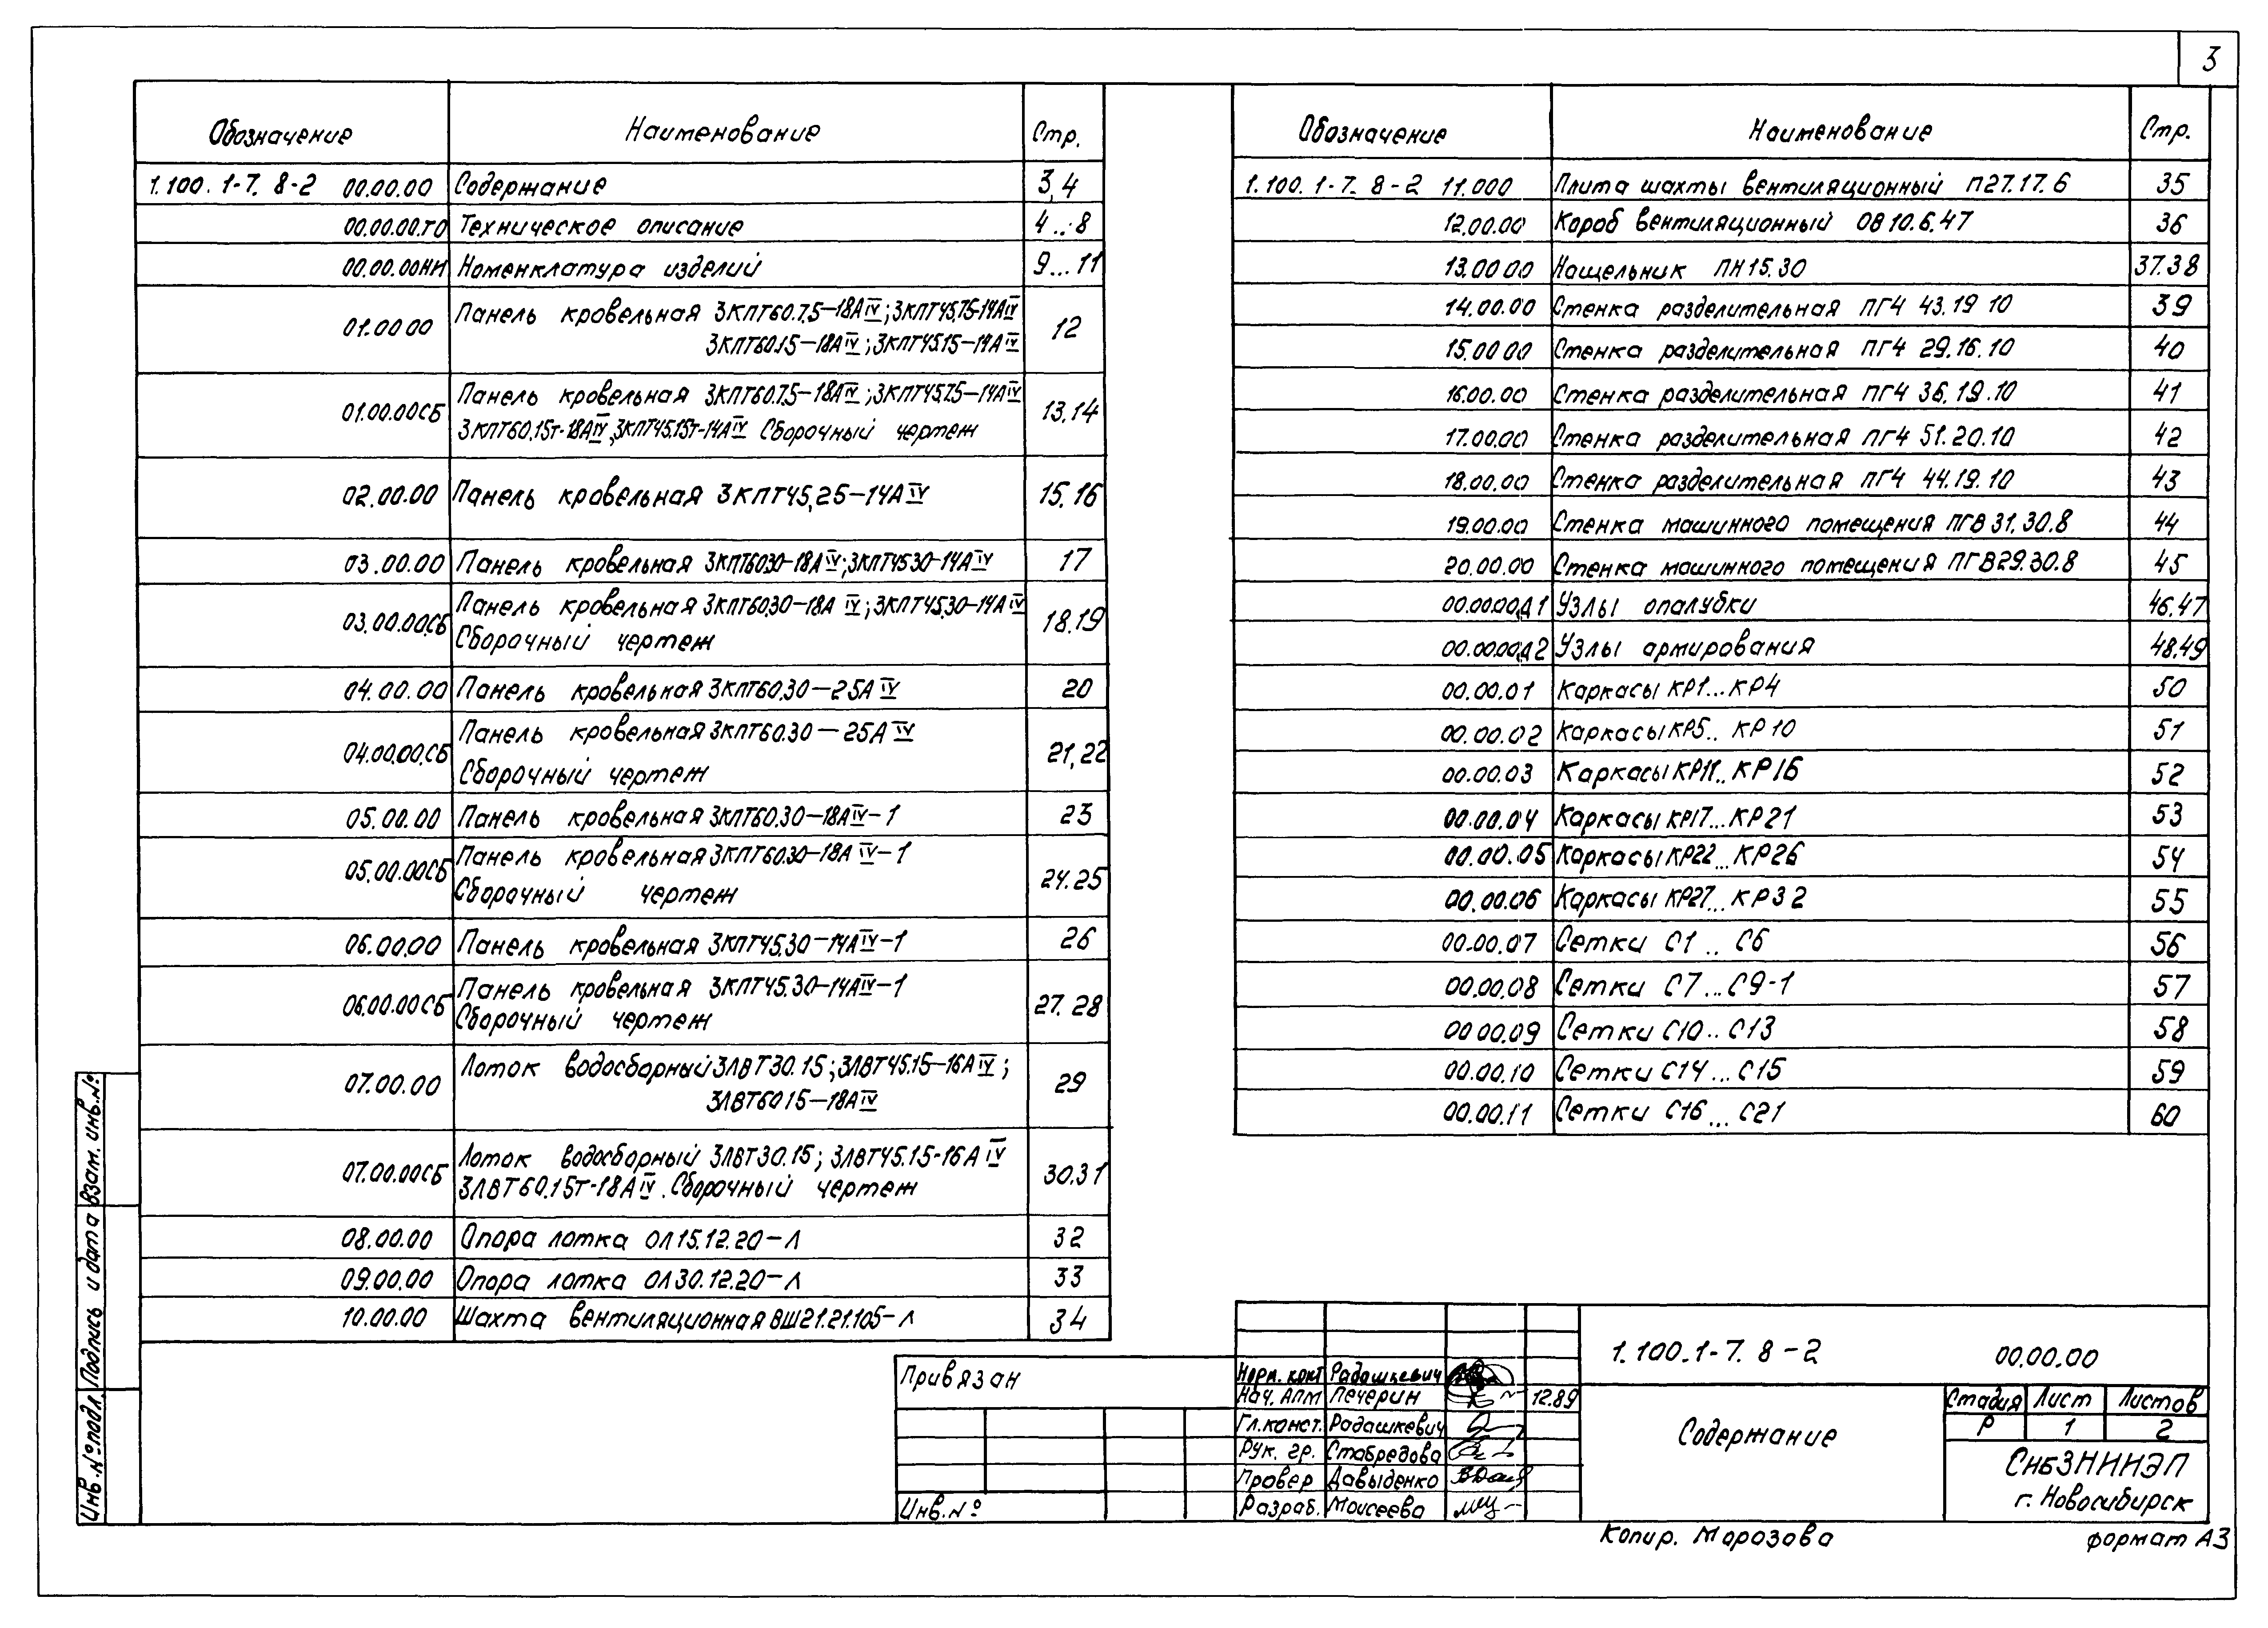 3
Обозначение Наименование Стр.
1.100.1-7. 8-2 00.00.00 Содержание 3,4
00.00.00.ТО Техническое описание 4...8
00.00.00НИ Номенклатура изделий 9...11
01.00 00 Панель кровельная 3КПТ60.7,5-18АIV; 3КПТ45.7,5-14АIV
3КПТ60.15-18АIV; 3КПТ45.15-14АIV 12
01.00.00СБ Панель кровельная 3КПТ60.7,5-18АIV; 3КПТ45.7,5-14АIV
3КПТ60.15т-18АIV, 3КПТ45.15т-14АIV Сборочный чертеж 13,14
02.00.00 Панель кровельная 3КПТ45,25-14АIV 15.16
03.00.00 Панель кровельная 3КПТ60.30-18АIV; 3КПТ45 30-14АIV 17
03.00.00.СБ Панель кровельная 3КПТ60.30-18А IV; 3КПТ45.30-14АIV
Сборочный чертеж 18.19
04.00.00 Панель кровельная 3КПТ60.30-25АIV 20
04.00.00.СБ Панель кровельная 3КПТ60.30-25АIV
Сборочный чертеж 21,22
05.00.00 Панель кровельная 3КПТ60.30-18АIV-1 23
05.00.00СБ Панель кровельная 3КПТ60.30-18АIV-1
Сборочный чертеж 24.25
06.00.00 Панель кровельная 3КПТ45.30-14АIV-1 26
06.00.00СБ Панель кровельная 3КПТ45.30-14АIV-1
Сборочный чертеж 27.28
07.00.00 Лоток водосборный 3ЛВТ30.15; 3ЛВТ45.15-16АIV;
3ЛВТ60 15-18АIV 29
07.00.00СБ Лоток водосборный 3ЛВТ30.15; 3ЛВТ45.15-16АIV
3ЛВТ60.15т-18АIV. Сборочный чертеж 30.31
08.00.00 Опора лотка ОЛ15.12.20-Л 32
09.00.00 Опора лотка ОЛ30.12.20-Л 33
10.00.00 Шахта вентиляционная ВШ21.21.105-Л 34
Обозначение Наименование Стр.
1.100.1-7. 8-2 11.000 Плита шахты вентиляционный П27.17.6 35
12.00.00 Короб вентиляционный ОВ10.6.47 36
13.00 00 Нащельник ПН15.30 37.38
14.00.00 Стенка разделительная ПГ4 43.19 10 39
15.00 00 Стенка разделительная ПГ4 29.16.10 40
16.00.00 Стенка разделительная ПГ4 36.19.10 41
17.00.00 Стенка разделительная ПГ4 51.20.10 42
18.00.00 Стенка разделительная ПГ4 44.19.10 43
19.00.00 Стенка машинного помещения ПГВ31.30.8 44
20.00.00 Стенка машинного помещения ПГВ29.30.8 45
00.00.00Д1 Узлы опалубки 46.47
00.00.00Д2 Узлы армирования 48.49
00.00.01 Каркасы КР1...КР4 50
00.00.02 Каркасы КР5.. КР10 51
00.00.03 Каркасы КР11.. КР16 52
00.00.04 Каркасы КР17...КР21 53
00.00.05 Каркасы КР22...КР26 54
00.00.06 Каркасы КР27...КР32 55
00.00.07 Сетки С1 .. С6 56
00.00.08 Сетки С7...С9-1 57
00 00.09 Сетки С10.. С13 58
00.00.10 Сетки С14...С15 59
00.00.11 Сетки С16...С21 60
Взам. инв.№
Подпись и дата
Инв.№ подл.
Привязан
Инв.№
Норм. конт Радашкевич
Нач. АПМ Печерин 12.89
Гл.конст. Радашкевич
Рук. гр. Стабредова
Провер Давыденко
Разраб. Моисеева
1.100.1-7. 8-2 00.00.00
Содержание
Стадия Лист Листов
Р 1 2
СибЗНИИЭП
г. Новосибирск
Копир. Морозова формат А3